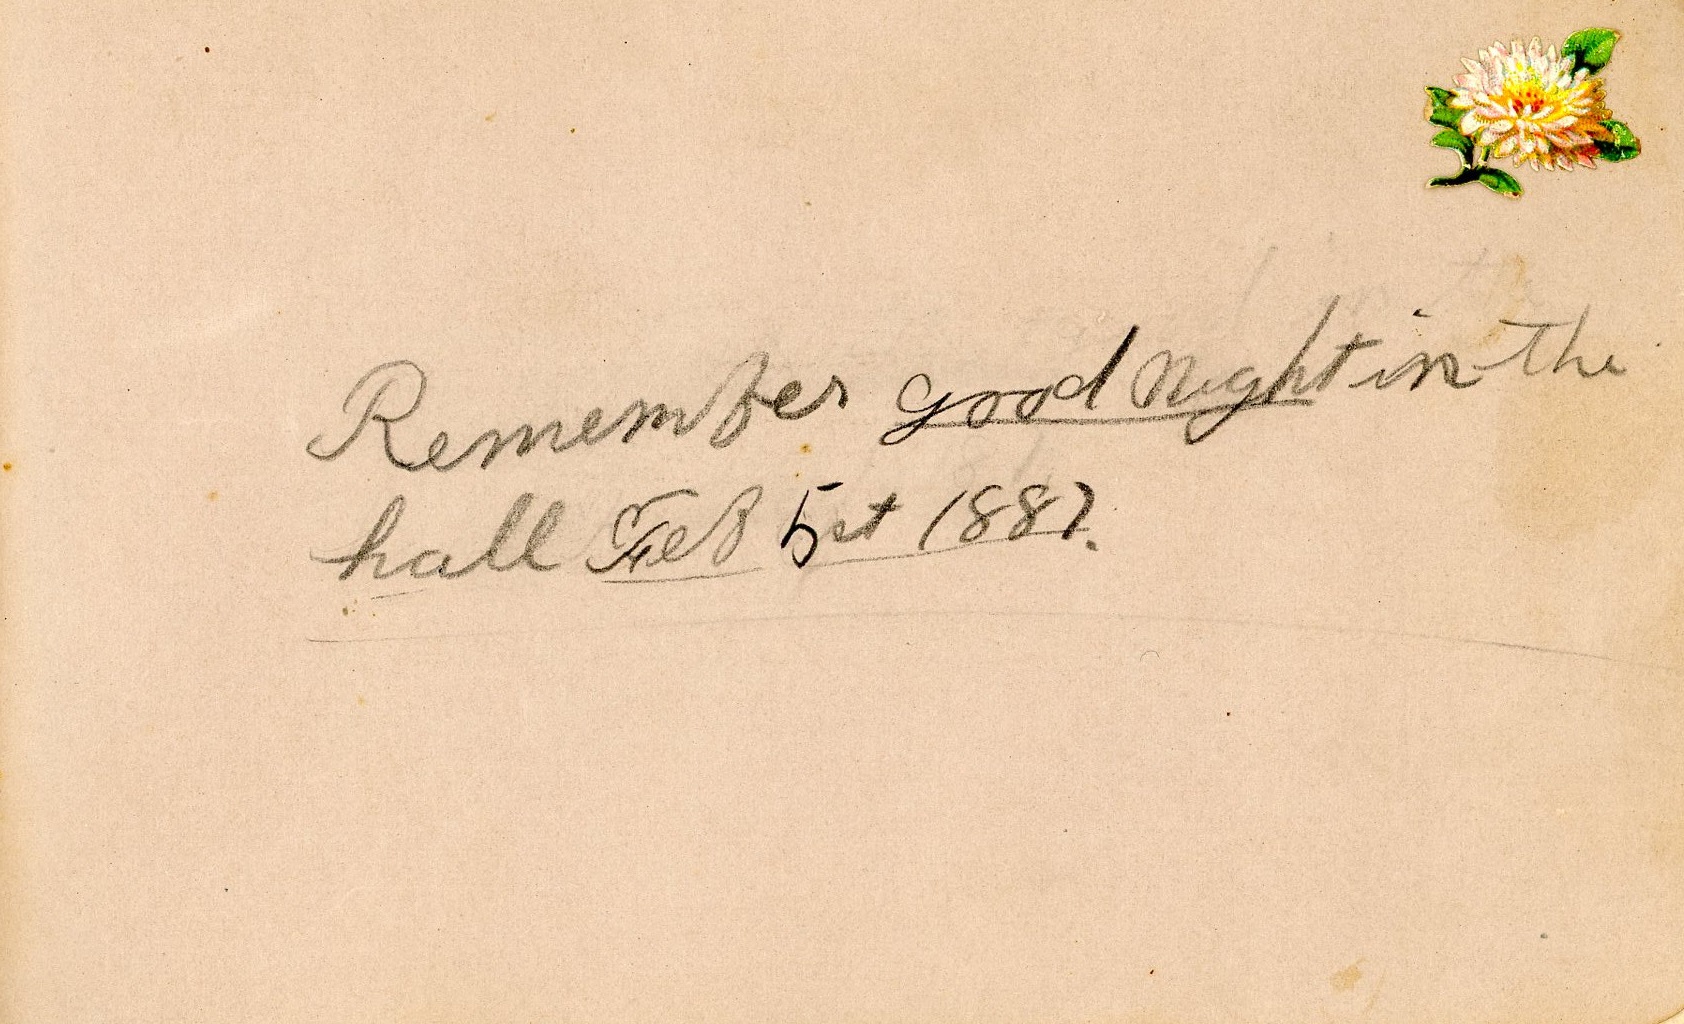 Remember good Night in the
hall Feb 5st 1887.